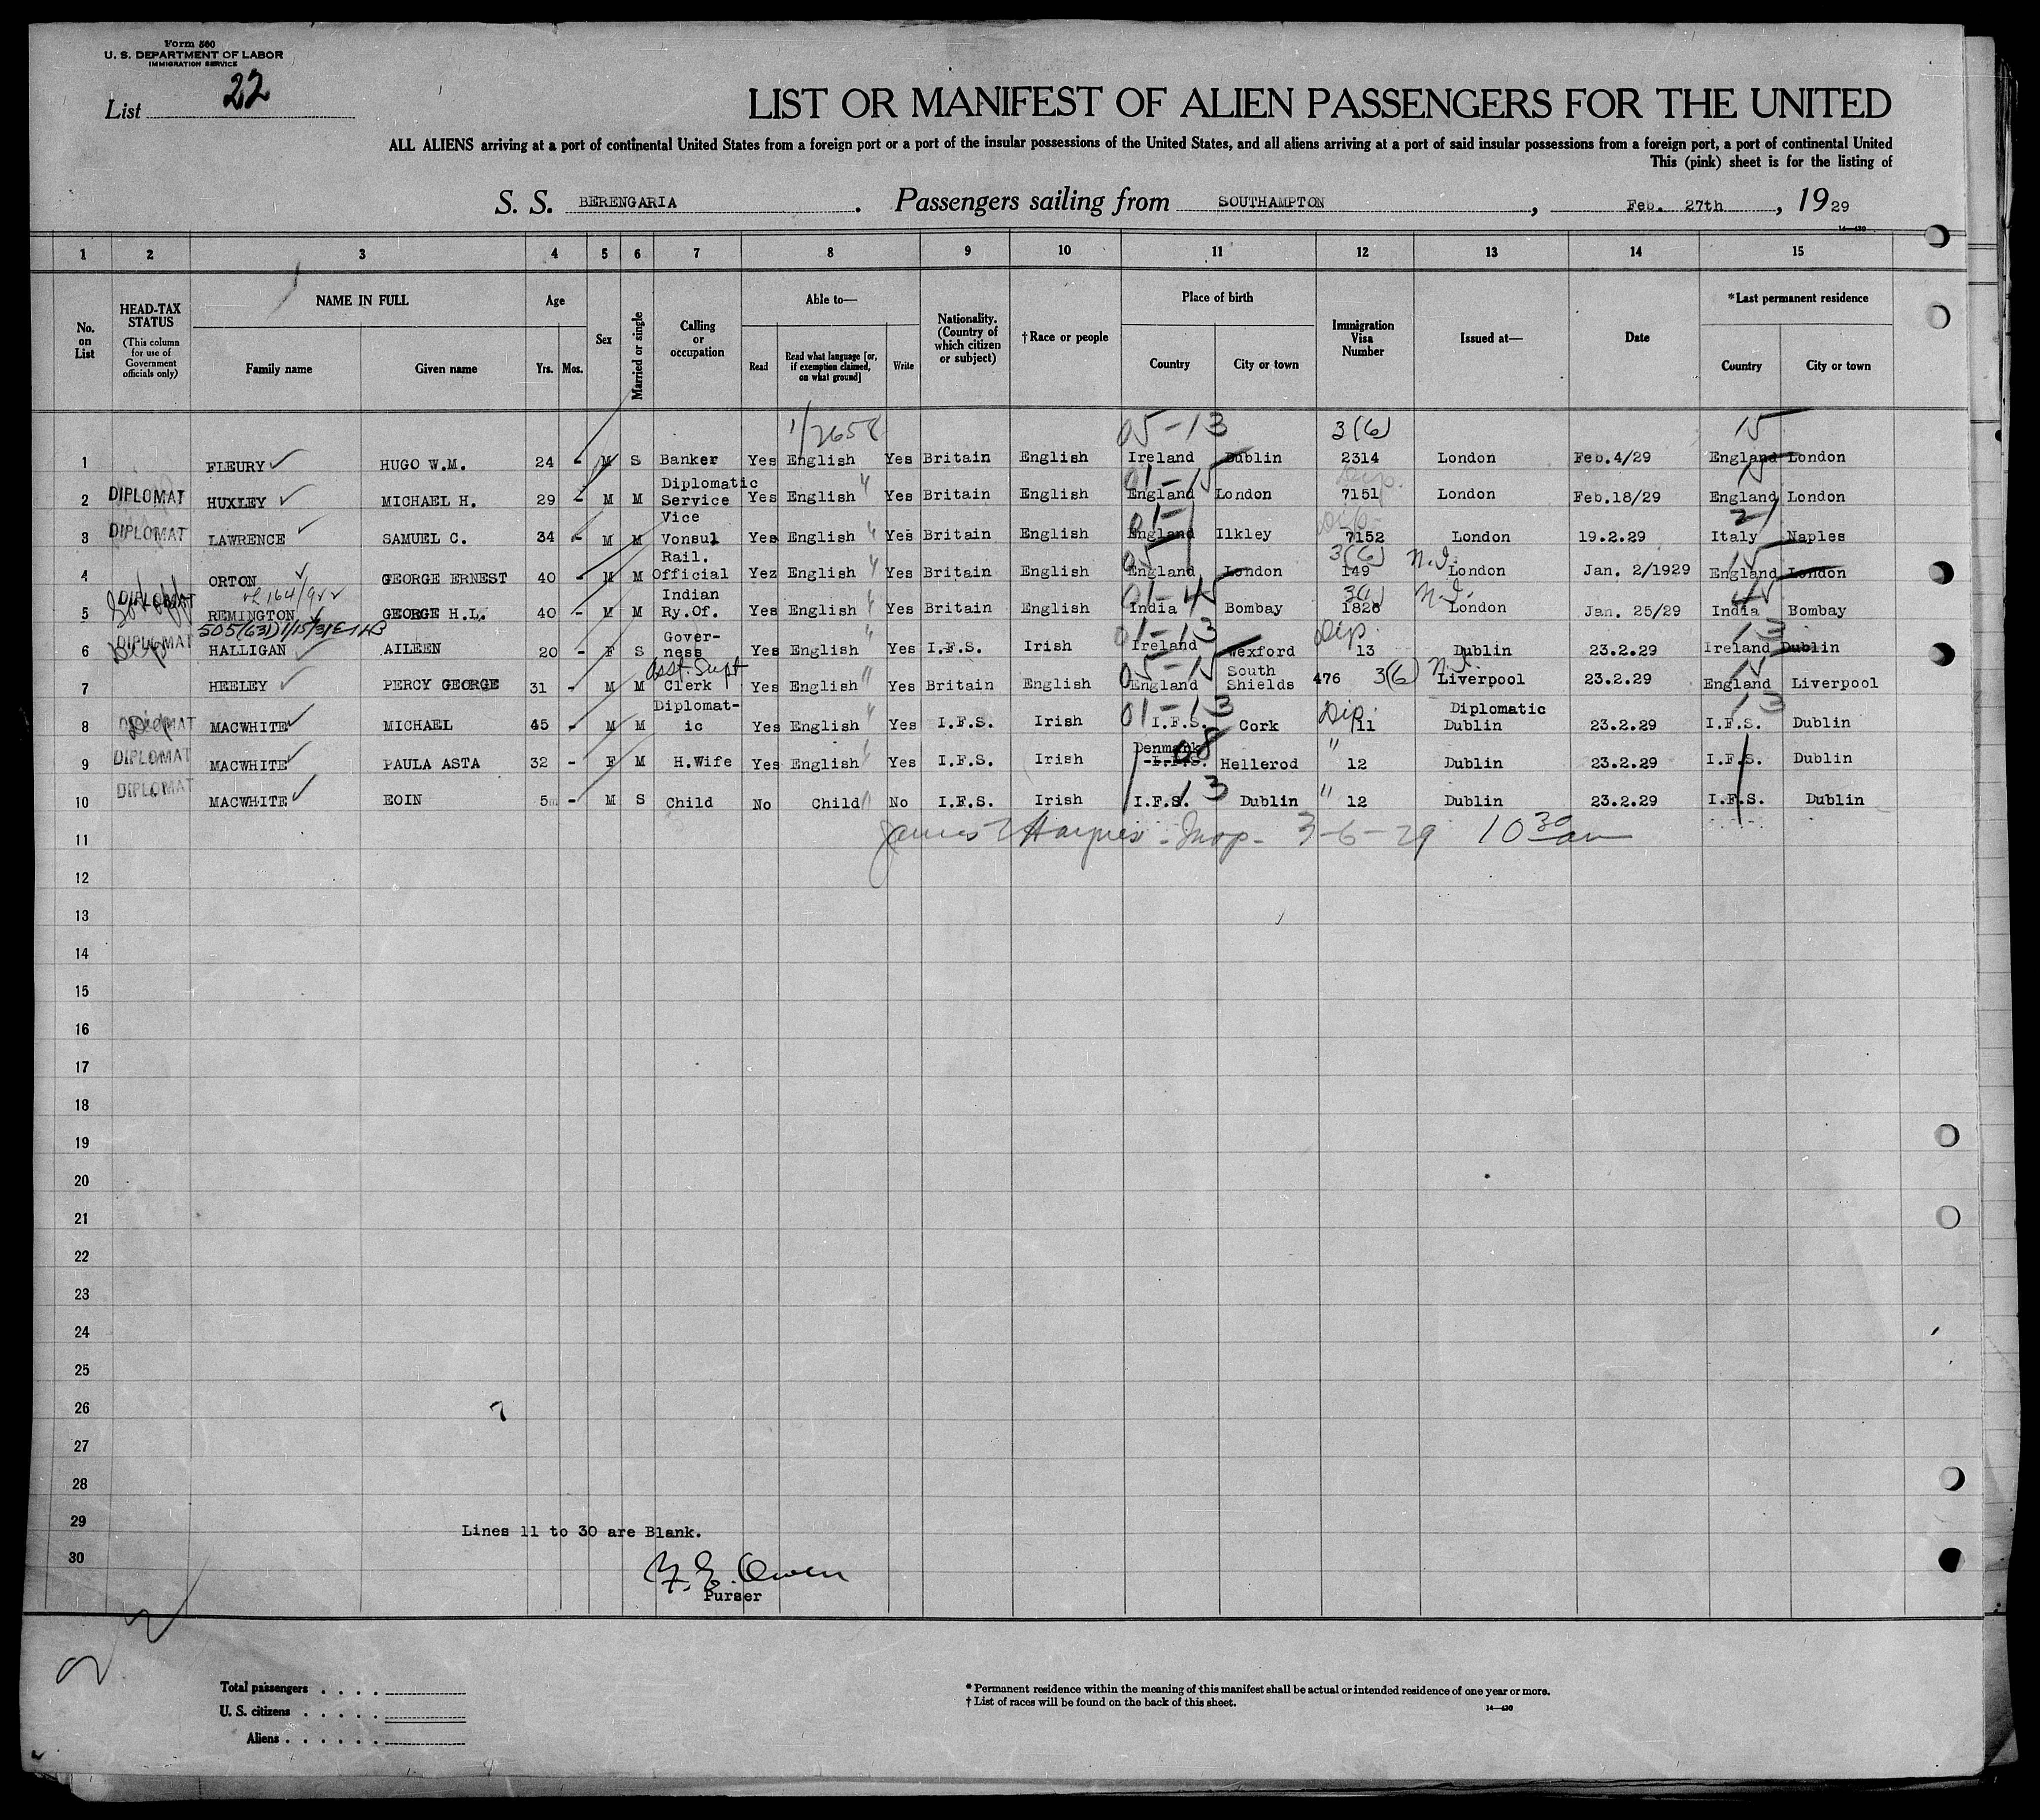 Form 500
U. S. DEPARTMENT OF LABOR
IMMIGRATION SERVICE
List 22
LIST OR MANIFEST OF ALIEN PASSENGERS FOR THE UNITED
ALL ALIENS arriving at a port of continental United States from a foreign port or a port of the insular possessions of the United States, and all aliens arriving at a port of said insular possessions from a foreign port, a port of continental United
This (pink) sheet is for the listing of
S. S. BERENGARIA. Passengers sailing from SOUTHAMPTON, Feb. 27th, 1929
14—430
1 2 3 4 5 6 7 8 9 10 11 12 13 14 15
No. on List
HEAD-TAX STATUS (This column for use of Government officials only)
NAME IN FULL
Family name Given name
Age
Yrs. Mos.
Sex
Married or single
Calling or occupation
Able to—
Read
Read what language [or, if exemption claimed, on what ground]
Write
Nationality. (Country of which citizen or subject)
†Race or people
Place of birth
Country City or town
Immigration Visa Number
Issued at—
Date
*Last permanent residence
Country City or town
1/2658 05-13 3(6) 15
1 FLEURY HUGO W.M. 24 - M S Banker Yes English Yes Britain English Ireland Dublin 2314 London Feb.4/29 England London
01-15 Dip. 15
2 DIPLOMAT HUXLEY MICHAEL H. 29 - M M Diplomatic Service Yes English " Yes Britain English England London 7151 London Feb.18/29 England London
01- Dip. 21
3 DIPLOMAT LAWRENCE SAMUEL C. 34 - M M Vice Vonsul Yes English " Yes Britain English England Ilkley 7152 London 19.2.29 Italy Naples
05 3(6) N.I. 15
4 ORTON GEORGE ERNEST 40 - M M Rail. Official Yez English " Yes Britain English England London 149 London Jan. 2/1929 England London
01-45 N.I. 45
5 DIPLOMAT REMINGTON GEORGE H.L. 40 - M M Indian Ry.Of. Yes English " Yes Britain English India Bombay 1826 London Jan. 25/29 India Bombay
01-13 Dip. 13
6 DIPLOMAT HALLIGAN AILEEN 20 - F S Gover- ness Yes English " Yes I.F.S. Irish Ireland Wexford 13 Dublin 23.2.29 Ireland Dublin
Asst. Supt 05-15 N.I. 15
7 HEELEY PERCY GEORGE 31 - M M Clerk Yes English " Yes Britain English England South Shields 476 3(6) Liverpool 23.2.29 England Liverpool
01-13 Dip. 13
8 DIPLOMAT Dip MACWHITE MICHAEL 45 - M M Diplomat- ic Yes English " Yes I.F.S. Irish I.F.S. Cork 11 Diplomatic Dublin 23.2.29 I.F.S. Dublin
9 DIPLOMAT MACWHITE PAULA ASTA 32 - F M H.Wife Yes English " Yes I.F.S. Irish Denmark I.F.S. 08 Hellerod " 12 Dublin 23.2.29 I.F.S. Dublin
10 DIPLOMAT MACWHITE EOIN 5m - M S Child No Child " No I.F.S. Irish I.F.S. 13 Dublin " 12 Dublin 23.2.29 I.F.S. Dublin
11 James Haynes - Insp - 3-6-29 10 30 am
12
13
14
15
16
17
18
19
20
21
22
23
24
25
26
27
28
29 Lines 11 to 30 are Blank.
30 Owen
Purser
Total passengers
U. S. citizens
Aliens
* Permanent residence within the meaning of this manifest shall be actual or intended residence of one year or more.
† List of races will be found on the back of this sheet.
14—430